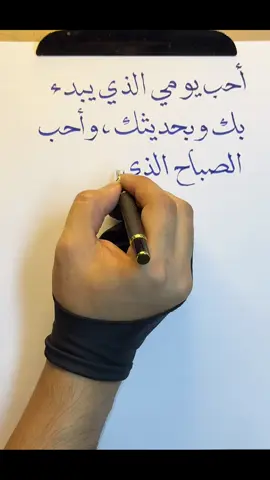 أحب يومي الذي يبدء
بك وبحديثك، وأحب
الصباح الذي